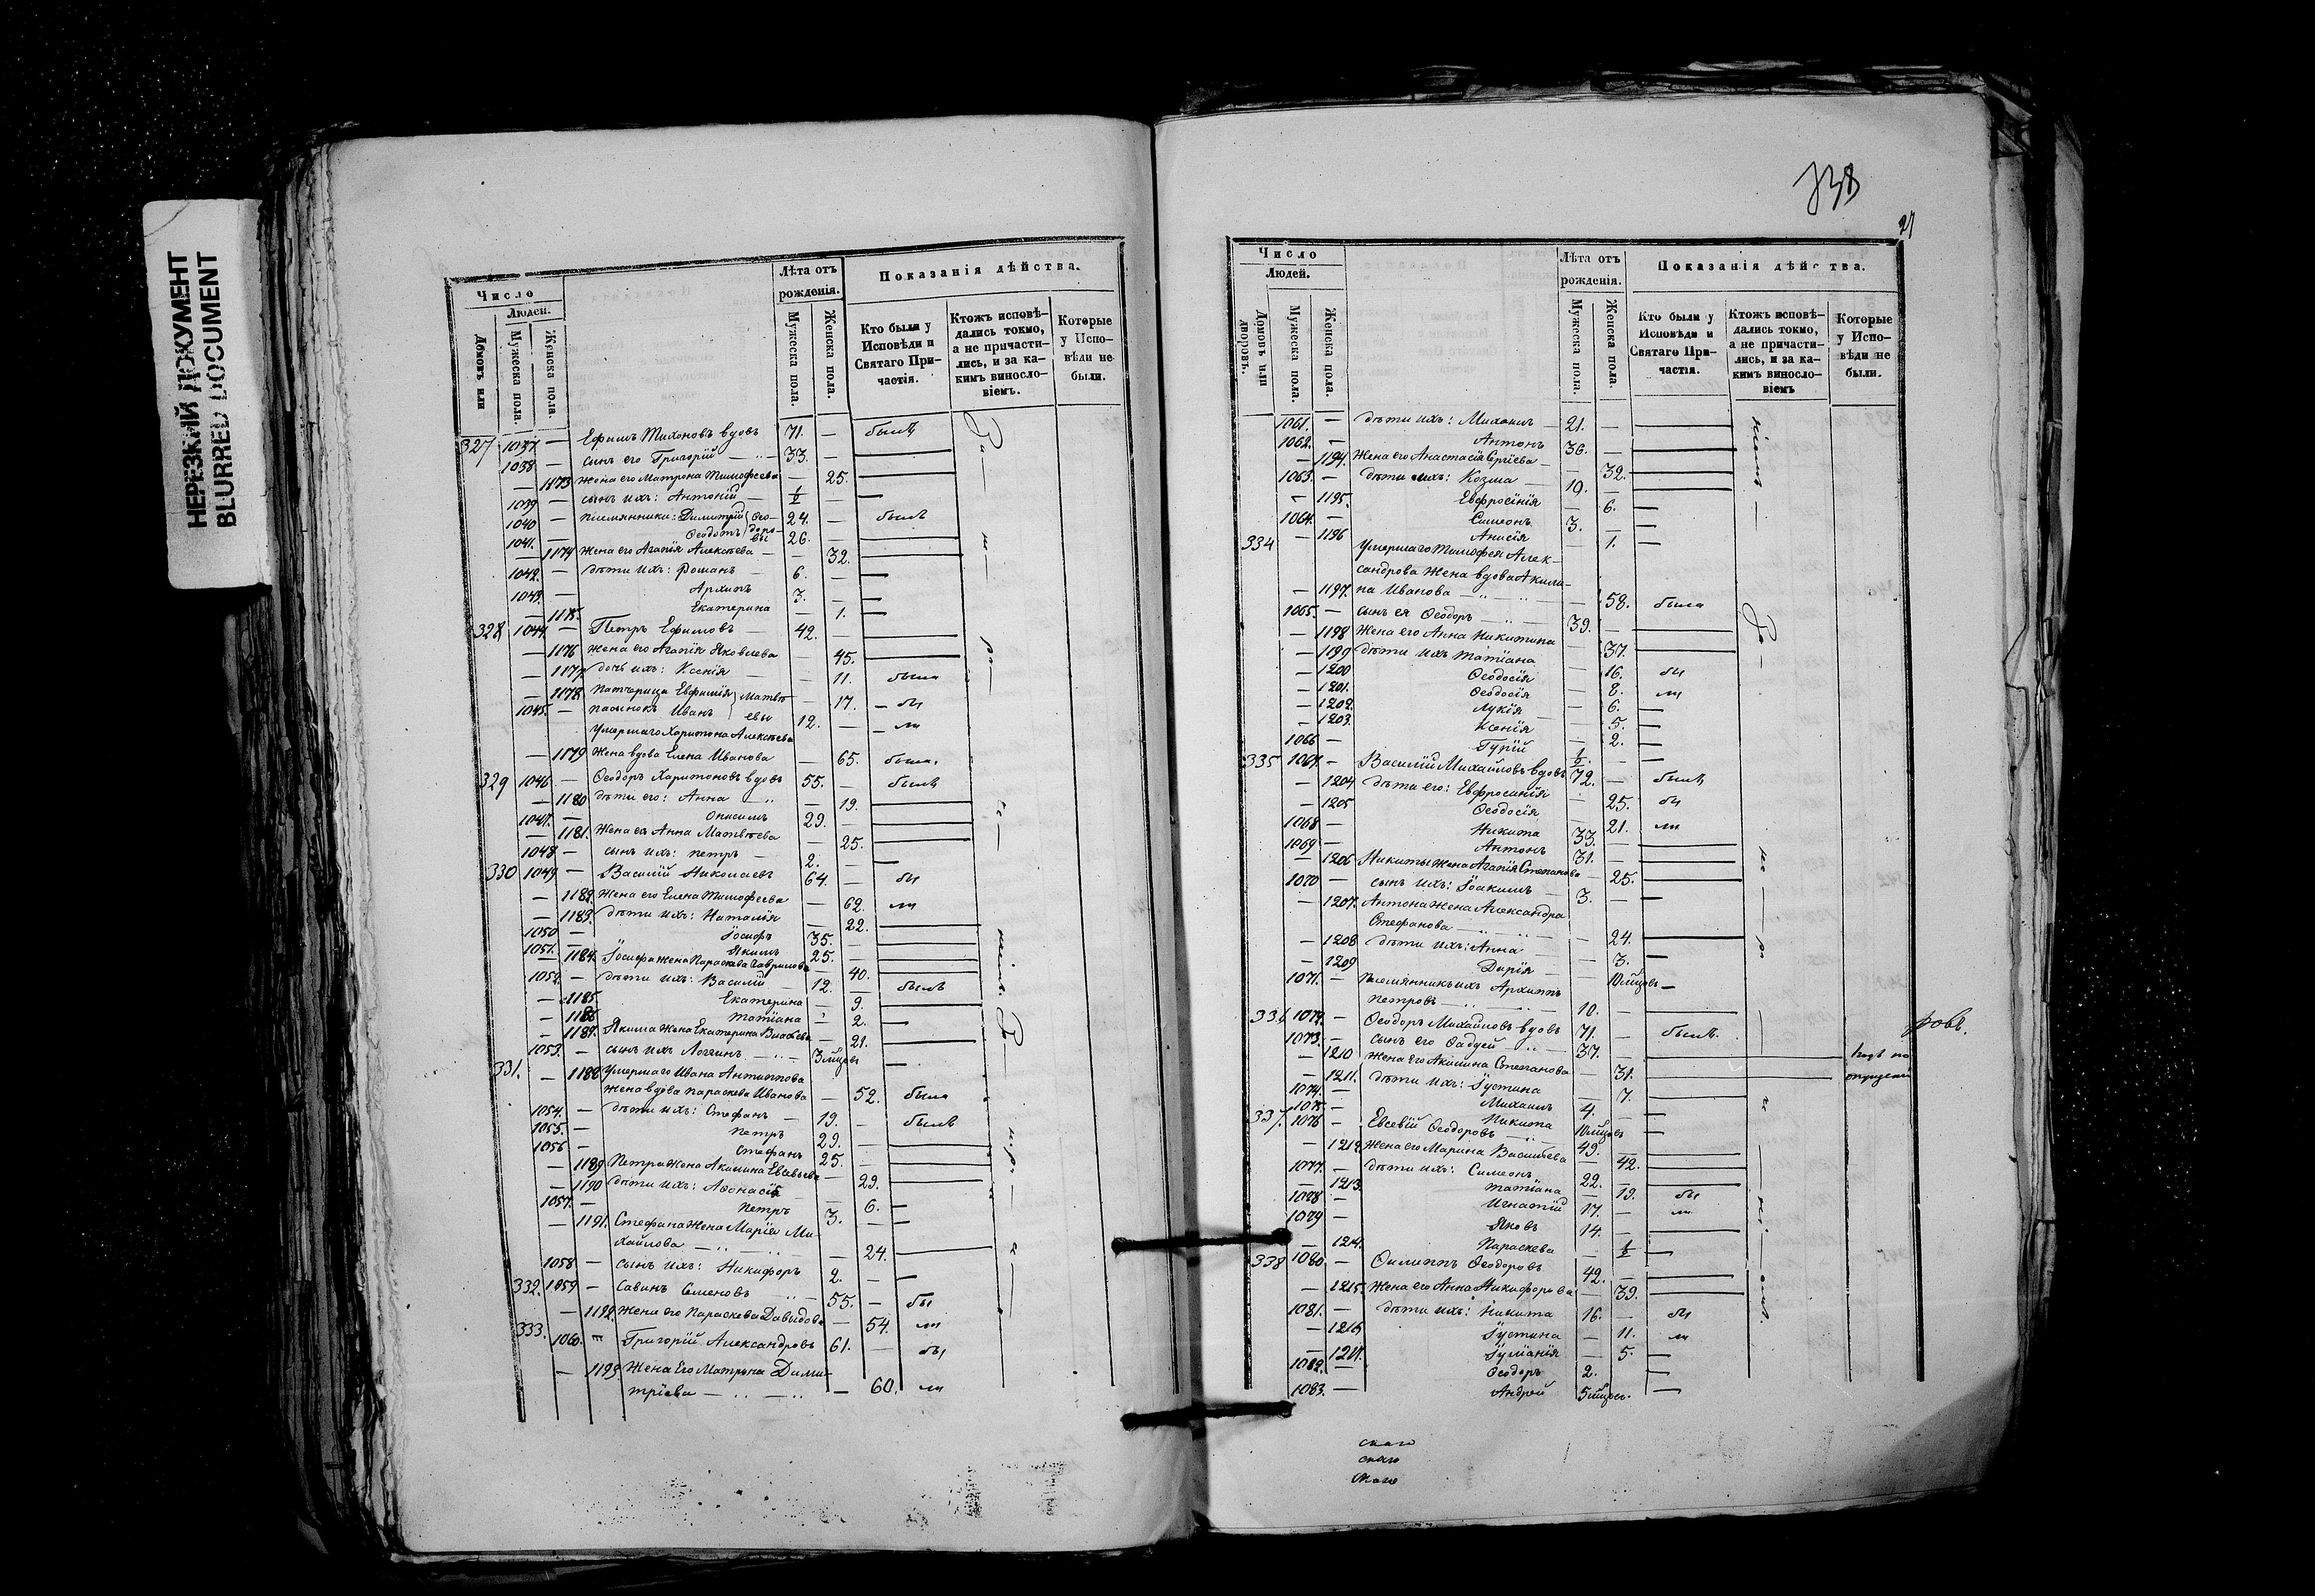 НЕРЕЗКИЙ ДОКУМЕНТ
BLURRED DOCUMENT
Число
Людей.
Домовъ или
Мужеска пола.
Женска пола.
Лѣта отъ рожденія.
Мужеска пола.
Женска пола.
Показанія дѣйства.
Кто были у Исповѣди и Святаго Причастія.
Ктожъ исповѣдались токмо, а не причастились, и за какимъ винословіемъ.
Которые у Исповѣди не были.
327 1037. — Ефимъ Тихоновъ вдовъ 71. — былъ
1038 — сынъ его Григорій — 33. —
— 1173 жена его Матрона Тимофеева — 25.
1039 — сынъ ихъ: Антоній — ½ —
1040 — племянники: Димитрій Ѳео- 24. — былъ
1041. — Ѳеодотъ доро- 26. —
вы
— 1174 жена его Агапія Алексѣева — 32.
1042. — дѣти ихъ: Романъ — 6. —
1043. — Архипъ 3. —
— 1175. Екатерина — 1.
328 1044. — Петръ Ефимовъ — 42. —
— 1176 жена его Агапія Яковлева — 45.
— 1177. дочь ихъ: Ксенія — 11. была
— 1178. падчерица Евфимія Матвѣ- — 17. бы
1045. — пасынокъ Иванъ евы 12. — ли
Умершаго Харитона Алексѣева
— 1179 жена вдова Елена Иванова — 65. была.
329 1046 — Ѳеодоръ Харитоновъ вдовъ 55. — былъ
— 1180 дѣти его: Анна — 19.
1047. — Онисимъ 29. —
— 1181. жена его Анна Матвѣева — 25.
1048 — сынъ ихъ: Петръ — 2. —
330 1049 — Василій Николаевъ 64. — бы
— 1182. жена его Елена Тимофеева — 62. ли
— 1183. дѣти ихъ: Наталія — 22.
1050 — Іосифъ 35. —
1051. — Якимъ 25. —
— 1184. Іосифа жена Параскева Гаврилова — 40.
1052. — дѣти ихъ: Василій — 12. — былъ
— 1185. Екатерина — 9.
— 1186 Татіана — 2.
— 1187. Якима жена Екатерина — 21.
1053. — сынъ ихъ Логгинъ — 3 мѣцовъ
331. — 1188 Умершаго Ивана Антиппова
жена вдова Параскева Иванова — 52. была
1054. — дѣти ихъ: Стефанъ — 19. — былъ
1055. — Петръ 29. —
1056 — Стефанъ 25. —
— 1189. Петра жена Акилина Евсевьева — 29.
— 1190 дѣти ихъ: Аѳонасія — 6.
1057. — Петръ 3. —
— 1191. Стефана жена Марія Ми-
хайлова — 24.
1058 — сынъ ихъ: Никифоръ 2. —
332. 1059 — Савинъ Семеновъ — 55. — бы
— 1192. жена его Параскева Давыдова — 54. ли
333. 1060. Григорій Александровъ 61. — бы
— 1193 жена его Матрона Дими-
тріева — 60. ли
738
27
Число
Людей.
Домовъ или дворовъ.
Мужеска пола.
Женска пола.
Лѣта отъ рожденія.
Мужеска пола.
Женска пола.
Показанія дѣйства.
Кто были у Исповѣди и Святаго Причастія.
Ктожъ исповѣдались токмо, а не причастились, и за какимъ винословіемъ
Которые у Исповѣди не были.
1061. — дѣти ихъ: Михаилъ 21. —
1062. — Антонъ 36. —
— 1194. жена его Анастасія Сергіева — 32.
1063. — дѣти ихъ: Козма — 10. —
— 1195. Евфросинія — 6.
1064. — Симеонъ 3. —
— 1196 Анисія — 1.
334 Умершаго Тимофея Алек-
сандрова жена вдова Акили-
— 1197. на Иванова — 58. была
1065. — сынъ ея Ѳеодоръ 39. —
— 1198 жена его Анна Никитина — 37.
— 1199 дѣти ихъ Татіана — 16. бы
— 1200 Ѳеодосія — 8. ли
— 1201. Ѳеодосія — 6.
— 1202. Лукія — 5.
— 1203. Ксенія — 2.
1066 — Гурій ½. —
335 1067. — Василій Михайловъ вдовъ 72. — былъ
— 1204 дѣти его: Евфросинія — 25. бы
— 1205 Ѳеодосія — 21. ли
1068 — Никита 33. —
1069. — Антонъ 31. —
— 1206 Никиты жена Агапія Степанова — 25.
1070 — сынъ ихъ: Іоакимъ — 3. —
— 1207. Антона жена Александра
Стефанова — 24.
— 1208 дѣти ихъ: Анна — 3.
— 1209 Дарія — 10 мѣцовъ
1071. — племянникъ ихъ Архиппъ
Петровъ — 10. —
336 1072. — Ѳеодоръ Михайловъ вдовъ 71. — былъ.
1073. — сынъ его Фадей — 37. —
— 1210 жена его Акилина Степанова — 31.
— 1211. дѣти ихъ: Іустина — 7.
1074. — Михаилъ 4. —
1075. — Никита 10 мѣцовъ
337. 1076 — Евсевій Ѳеодоровъ — 49. —
— 1212. жена его Марина Васильева — 42.
1077. — дѣти ихъ: Симеонъ 22. —
— 1213. Татіана — 19. бы
1078 — Игнатій 17. — ли
1079 — Яковъ 14. —
— 1214. Параскева — ½
338 1080. — Филиппъ Ѳеодоровъ 42. —
— 1215. жена его Анна Никифорова — 39.
1081. — дѣти ихъ: Никита 16. — бы
— 1216 Іустина — 11. ли
— 1217. Іуліанія — 5.
1082. — Ѳеодоръ 2. —
1083. — Андрей 5 мѣцовъ.
скаго
скаго
скаго